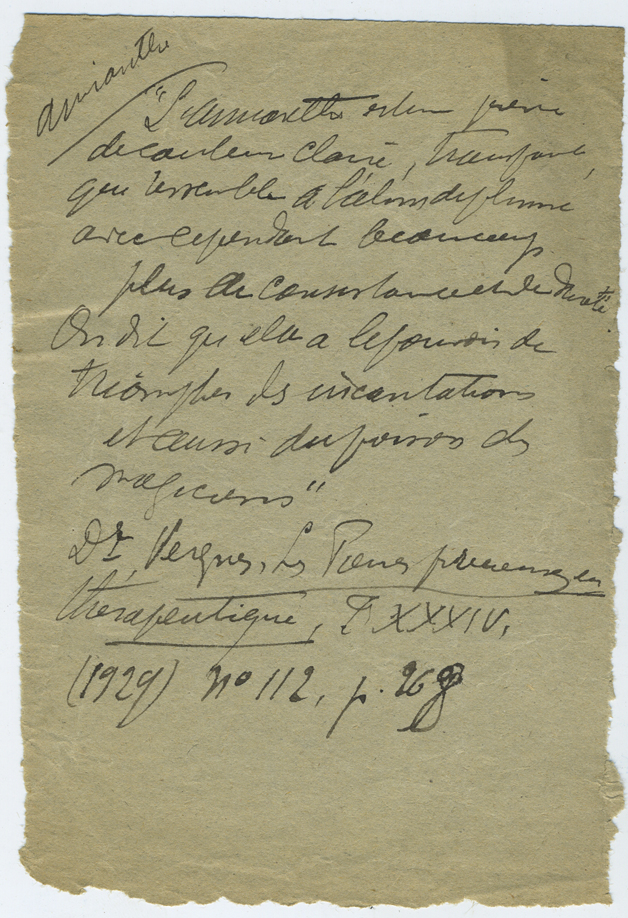 amianthe
"L'amianthe est une pierre
de couleur claire, transparente,
qui ressemble à l'alun de plume
avec cependant beaucoup
plus de consistance et de dureté.
On dit qu'elle a le pouvoir de
triompher des incantations
et aussi du poison des
magiciens"
Dr Vergnes, Les Pierres précieuses en
thérapeutique, T XXXIV,
(1929) no 112, p.